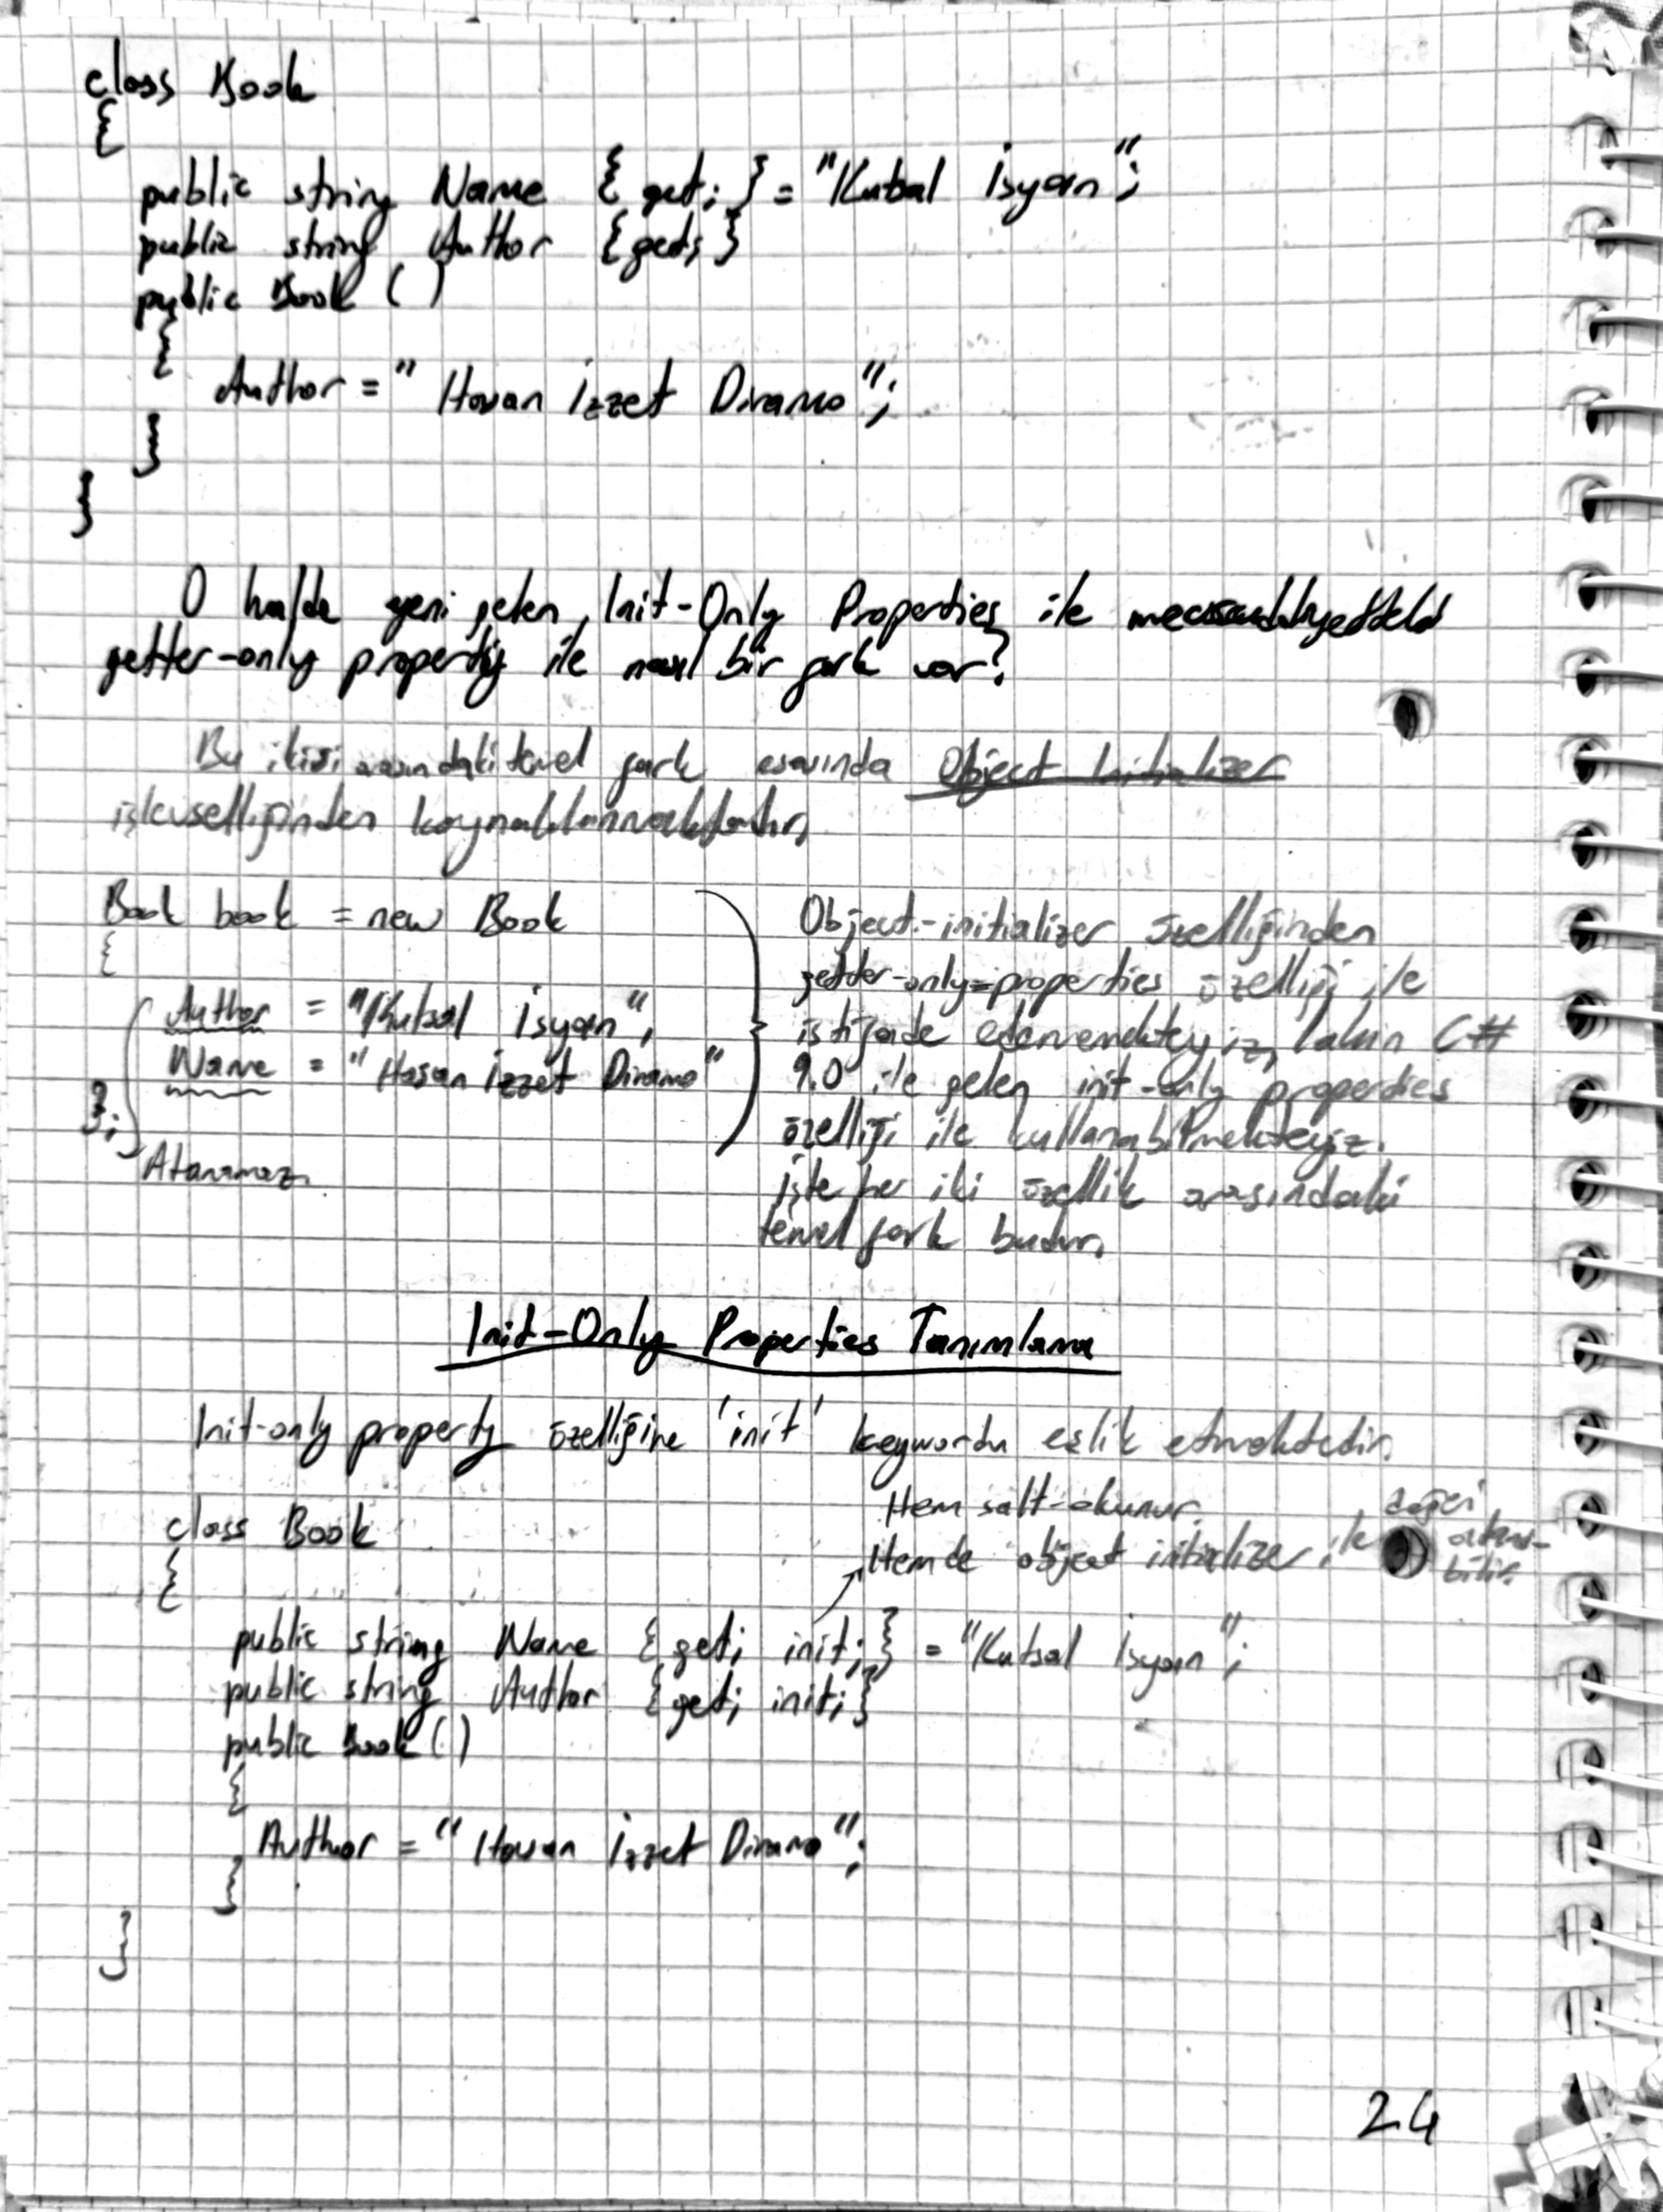 class Book
{
public string Name { get; } = "Kutsal İsyan";
public string Author { get; }
public Book ( )
{
Author = " Hasan İzzet Dinamo";
}
}
O halde yeni gelen Init-Only Properties ile
getter-only property ile nasıl bir fark var?
Bu ikisi arasındaki temel fark esasında Object Initializer
işlevselliğinden kaynaklanmaktadır.
Book book = new Book
{
Author = "Kutsal İsyan",
Name = "Hasan İzzet Dinamo"
};
Atanamaz
Object-initializer özelliğinden
getter-only-properties özelliği ile
istifade edememekteyiz, lakin C#
9.0 ile gelen init-only properties
özelliği ile kullanabilmekteyiz.
işte her iki özellik arasındaki
temel fark budur.
Init-Only Properties Tanımlama
Init-only property özelliğine 'init' keywordu eşlik etmektedir.
Hem salt-okunur.
Hemde object initializer ile değeri atana-
bilir.
class Book
{
public string Name { get; init; } = "Kutsal İsyan";
public string Author { get; init; }
public Book ( )
{
Author = "Hasan İzzet Dinamo";
}
}
24